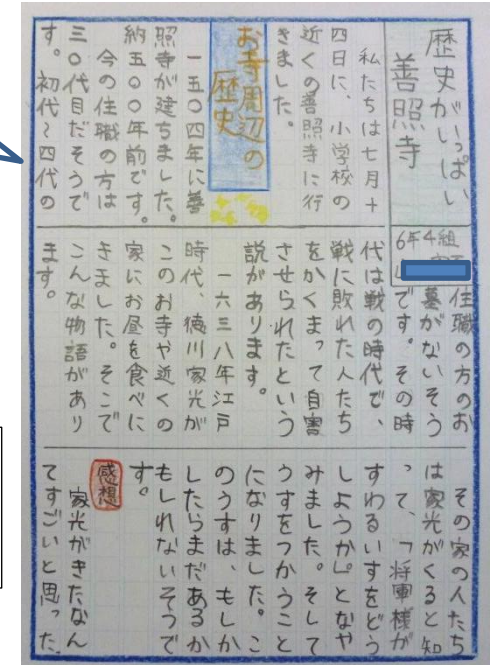 歴史がいっぱい
善照寺
6年4組
私たちは七月十
四日に、小学校の
近くの善照寺に行
きました。
お寺周辺の
歴史
一五〇四年に善
照寺が建ちました。
納五〇〇年前です。
今の住職の方は
三〇代目だそうで
す。初代~四代の
住職の方のお
墓がないそう
です。その時
代は戦の時代で、
戦に敗れた人たち
をかくまって自害
させられたという
説があります。
一六三八年江戸
時代、徳川家光が
このお寺や近くの
家にお昼を食べに
きました。そこで
こんな物語があり
ます。
その家の人たち
は家光がくると知
って、「将軍様が
すわるいすをどう
しようか」となや
みました。そして
うすをつかうこと
になりました。こ
のうすは、もしか
したらまだあるか
もしれないそうで
す。
感想
家光がきたなん
てすごいと思った。